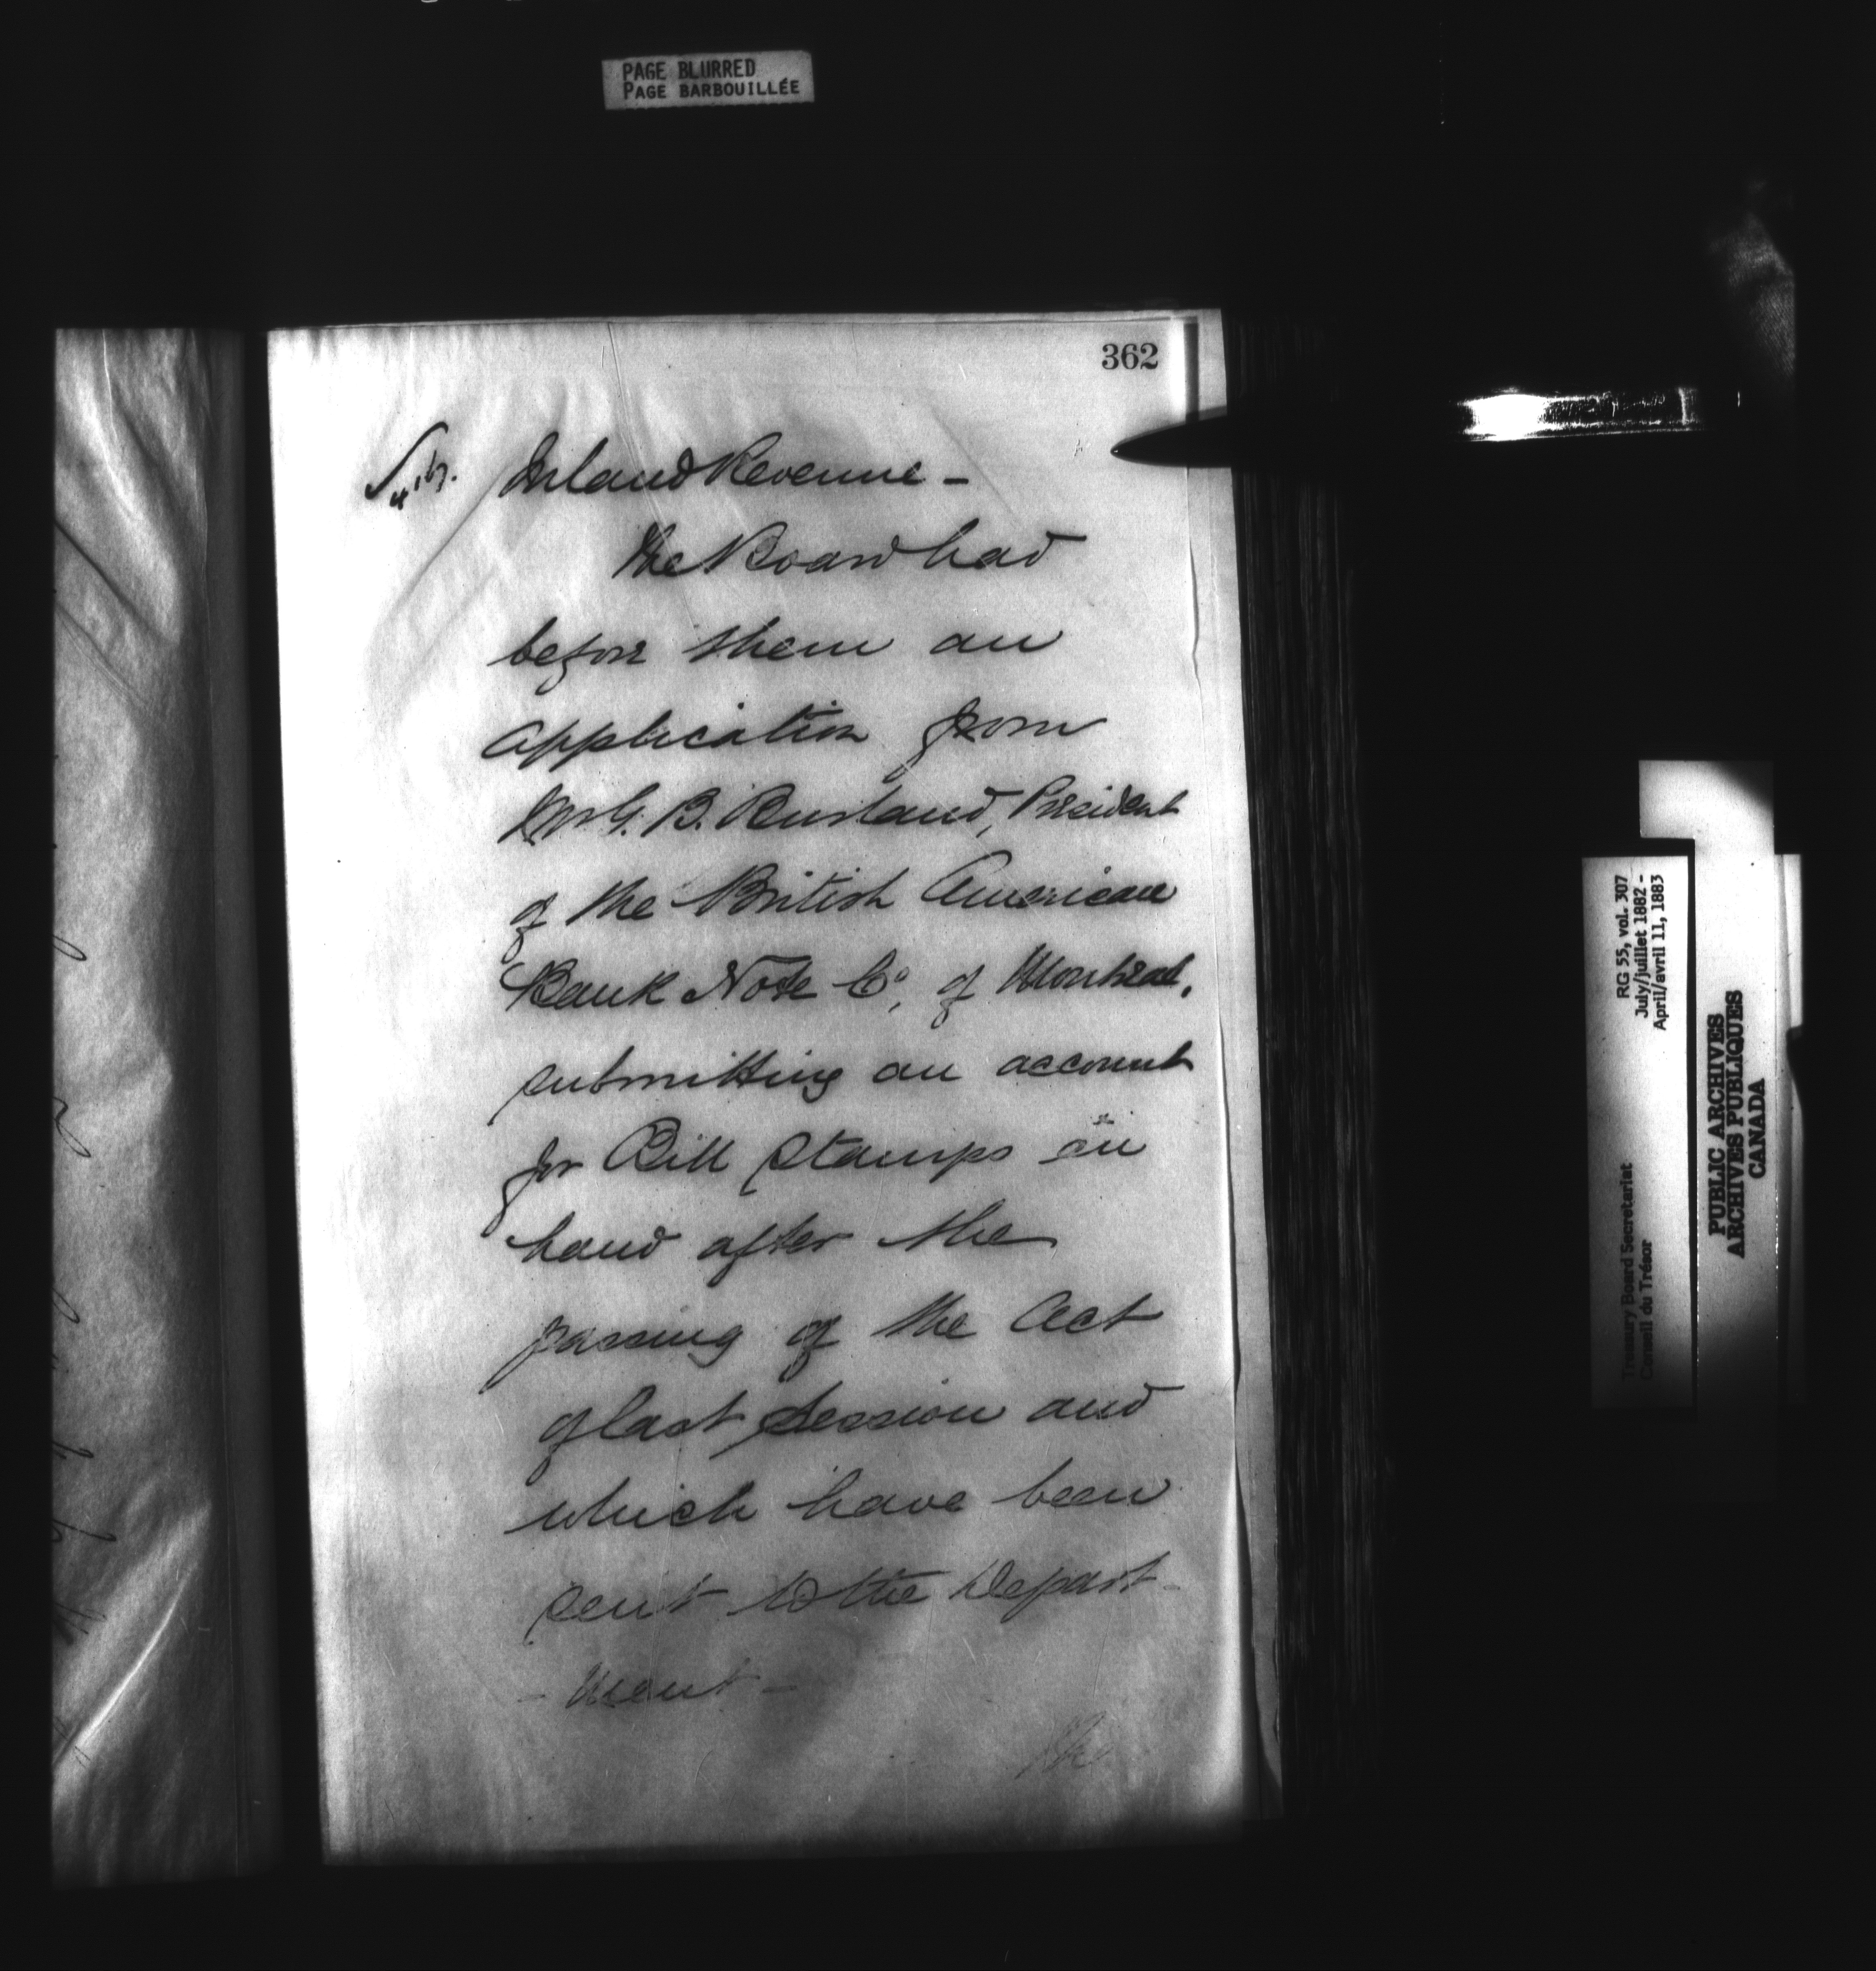 PAGE BLURRED
PAGE BARBOUILLÉE
362
Inland Revenue -
The Board had
before them an
application from
Mr G. B. Burland, President
of the British American
Bank Note Co, of Montreal,
submitting an account
for Bill Stamps on
hand after the
passing of the Act
of last Session and
which have been
sent to the Depart-
- ment -
The
RG 55, vol. 307
July/juillet 1882 -
April/avril 11, 1883
Treasury Board Secretariat
Conseil du Trésor
PUBLIC ARCHIVES
ARCHIVES PUBLIQUES
CANADA